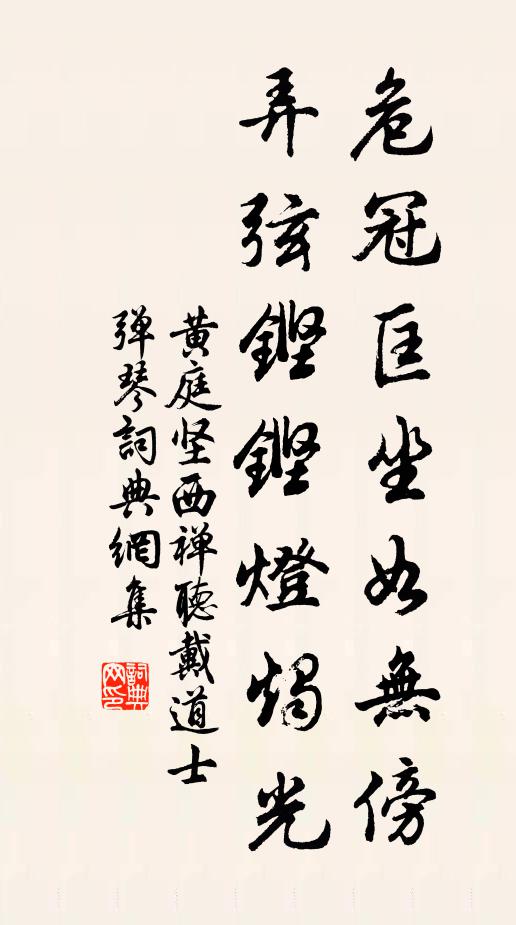 危冠匡坐如無傍
弄弦鏗鏗燈燭光
黄庭坚西禅聽戴道士
弹琴詞典網集
詞典网印